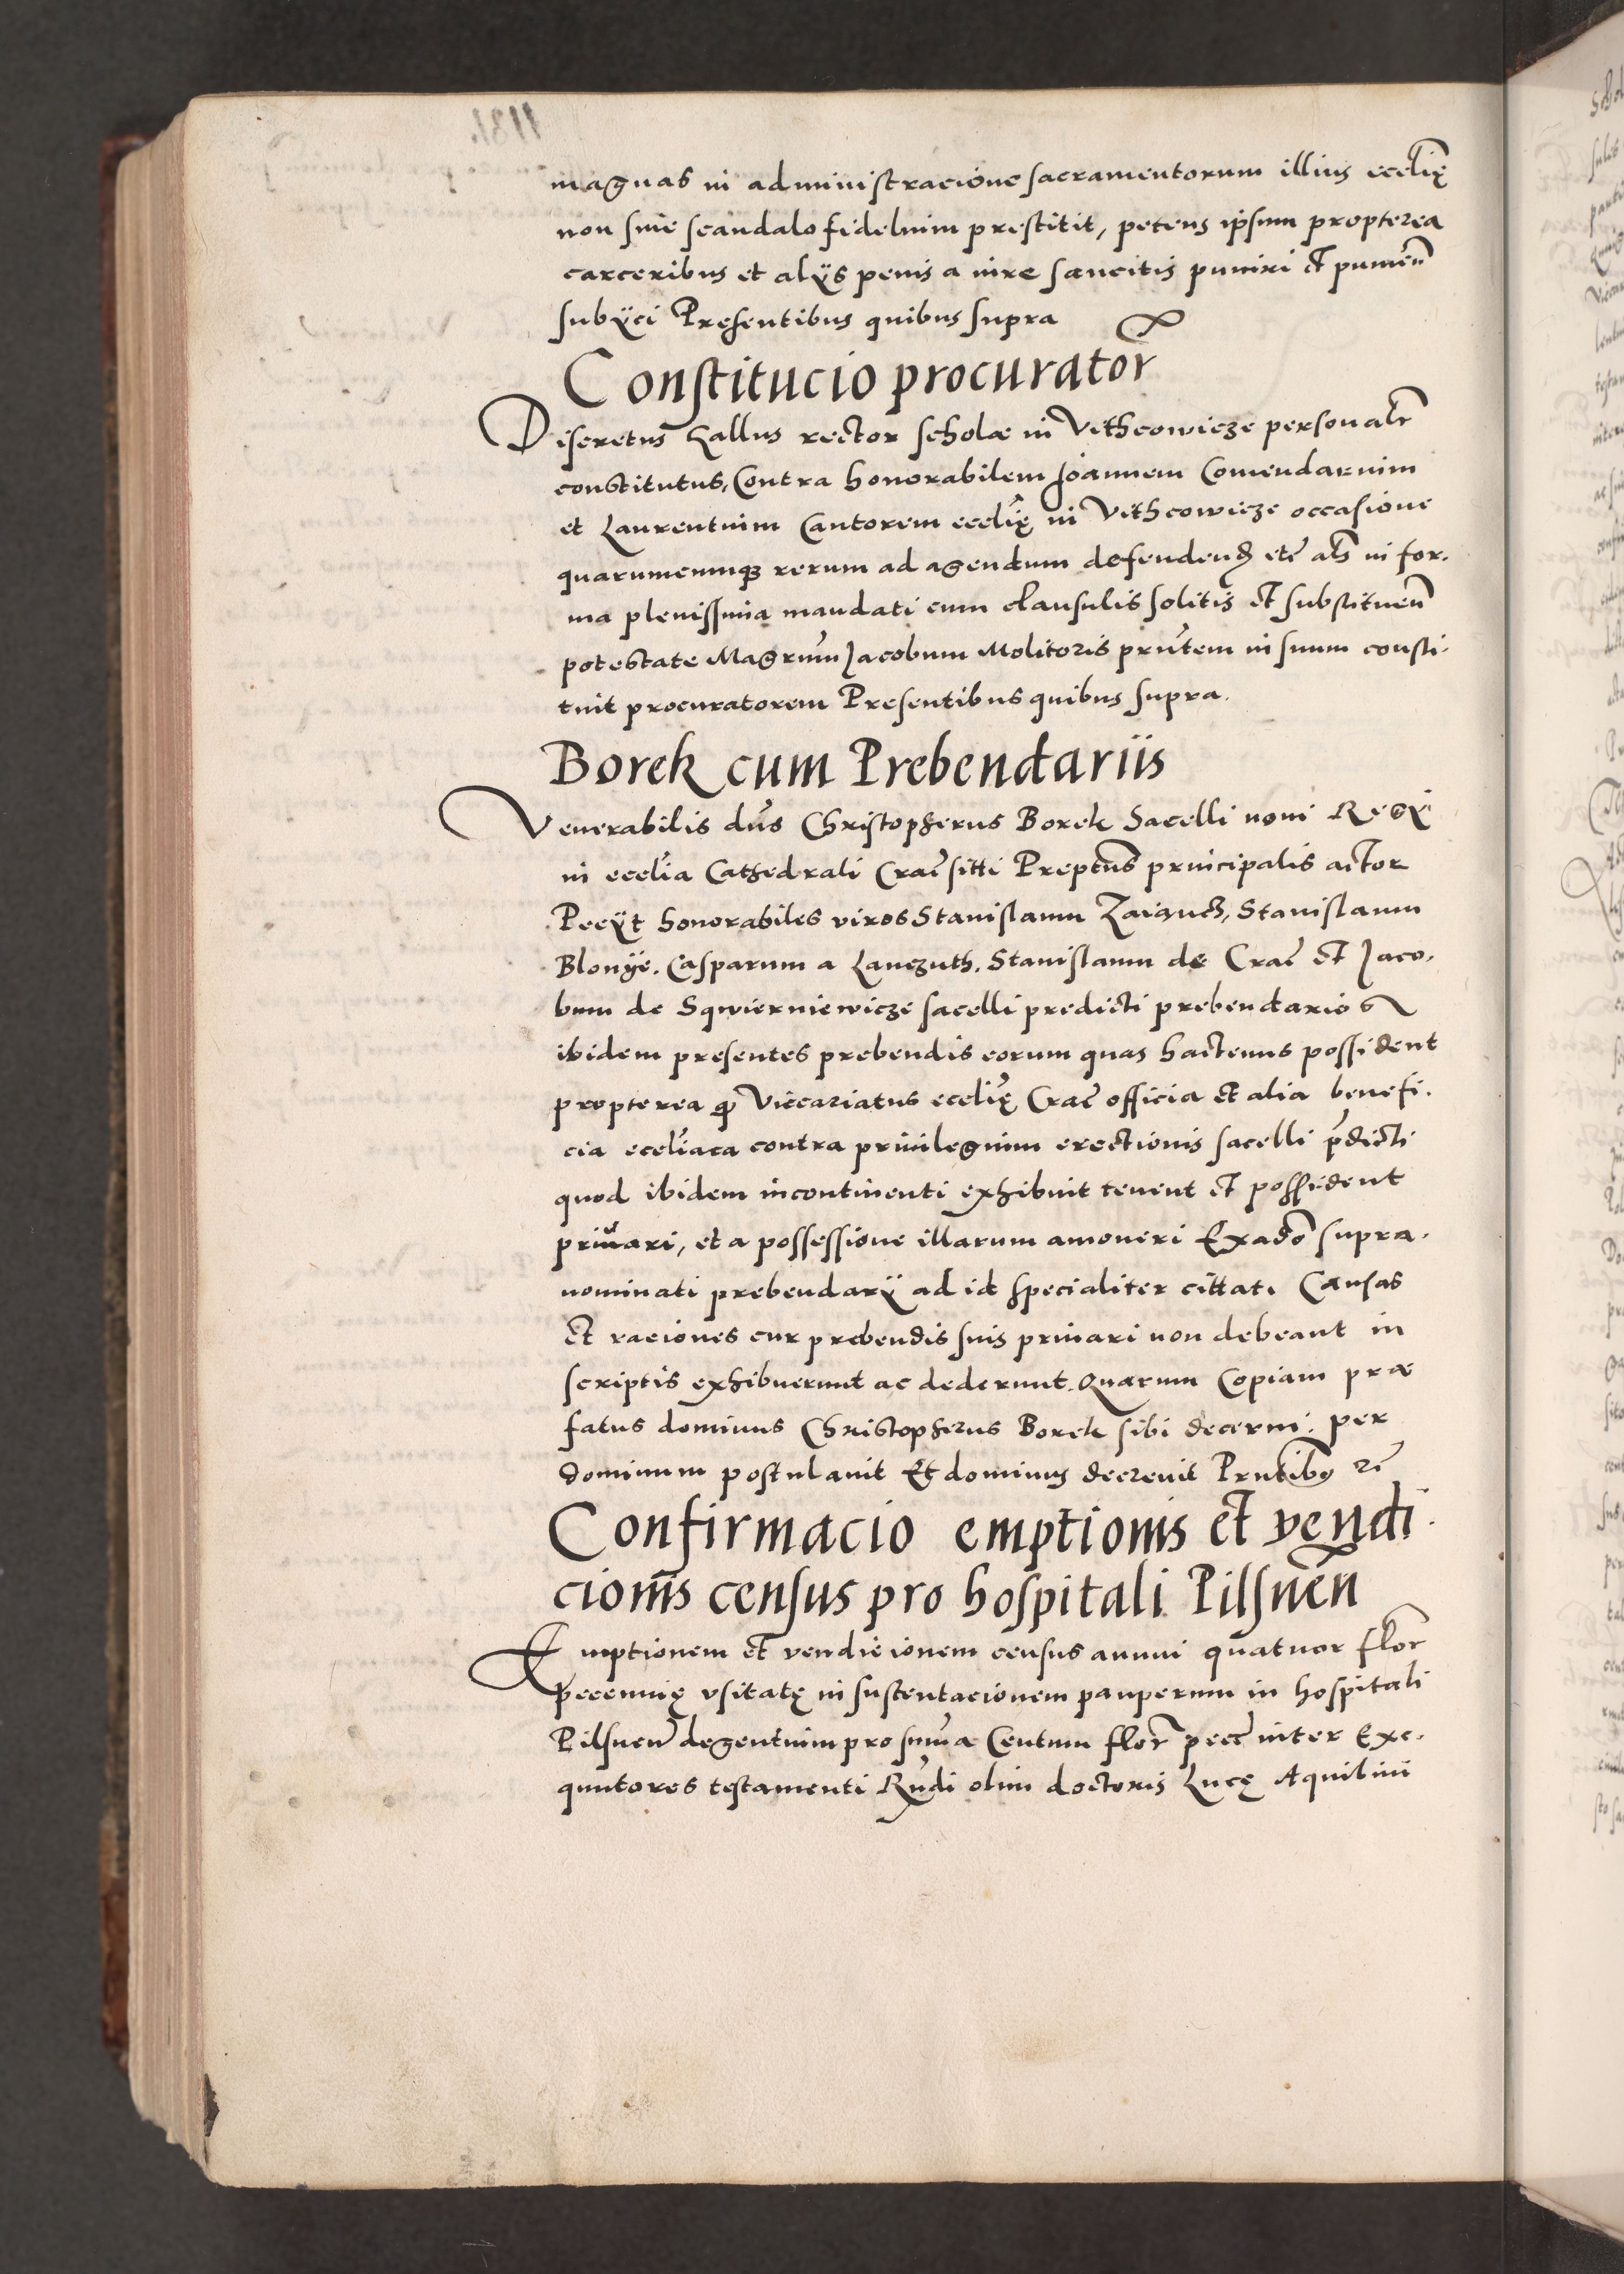 magnas in administracione sacramentorum illius eccli̅ę
non sine scandalo fidelium prestitit, petens ipsum propterea
carceribus et alÿs penis a iure sancitis puniri et punien̅
subÿci Presentibus quibus supra
Constitucio procurator̅
Discretus Gallus rector scholæ in Vithcowicze personalr̅
constitutus, Contra honorabilem Joannem Comendarium
et Laurentium Cantorem eccli̅ę in Vithcowicze occasione
quarumcumqȝ rerum ad agendum defendend̅ etc̅ als̅ in for-
ma plenissima mandati cum clausulis solitis et substituen̅
potestate Magrum̅ Jacobum Molitoris prn̅tem in suum consti-
tuit procuratorem Presentibus quibus supra.
Borek cum Prebendariis
Venerabilis dn̅s Christopherus Borek Sacelli noui Regÿ
in eccli̅a Cathedrali Crac̅ sitti Prepтus̅ principalis actor
Pecÿt honorabiles viros Stanislaum Zaiąnch, Stanislaum
Blonÿe. Casparum a Lanczuth. Stanislaum de Crac̅ et Jaco-
bum de Sqwierniewicze sacelli predicti prebendarios
ibidem presentes prebendis eorum quas hactenus possident
propterea qȝ Viccariatus eccli̅ę Crac̅ officia et alia benefi-
cia eccli̅aca contra priuilegium erectionis sacelli p̅dicti
quod ibidem incontinenti exhibuit tenent et possident
priuari, et a possessione illarum amoueri Exad̅o supra-
nominati prebendarÿ ad id specialiter cittati Causas
et raciones cur prebendis suis priuari non debeant in
scriptis exhibuerunt ac dederunt. Quarum Copiam præ
fatus dominus Christopherus Borek sibi decerni per
dominum postulauit Et dominus decreuit Prn̅tibȝ rc̅
Confirmacio emptionis et vendi-
cionis census pro hospitali Pilsnen̅
Emptionem et vendicionem census annui quatuor flor̅
pecunię vsitatę in sustentacionem pauperum in hospitali
Pilsnen̅ degentium pro sum̅a Centum flor̅ pecc̅ inter Exe-
quutores testamenti Rn̅di olim doctoris Lucę Aquilini